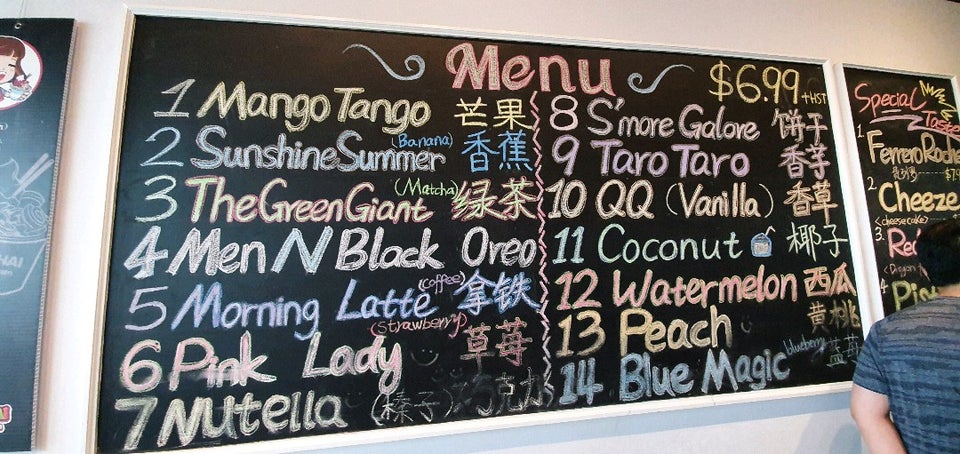 Menu
$6.99 +HST
1 Mango Tango 芒果
2 Sunshine Summer (Banana) 香蕉
3 The Green Giant (Matcha) 绿茶
4 Men N Black Oreo
5 Morning Latte (coffee) 拿铁
6 Pink Lady (strawberry) 草莓
7 Nutella (榛子) 巧克力
8 S'more Galore 饼子
9 Taro Taro 香芋
10 QQ (Vanilla) 香草
11 Coconut 椰子
12 Watermelon 西瓜
13 Peach 黄桃
14 Blue Magic blueberry 蓝莓
Special
1. Ferrero Roche
2. Cheeze
<cheesecake>
3. Re
4